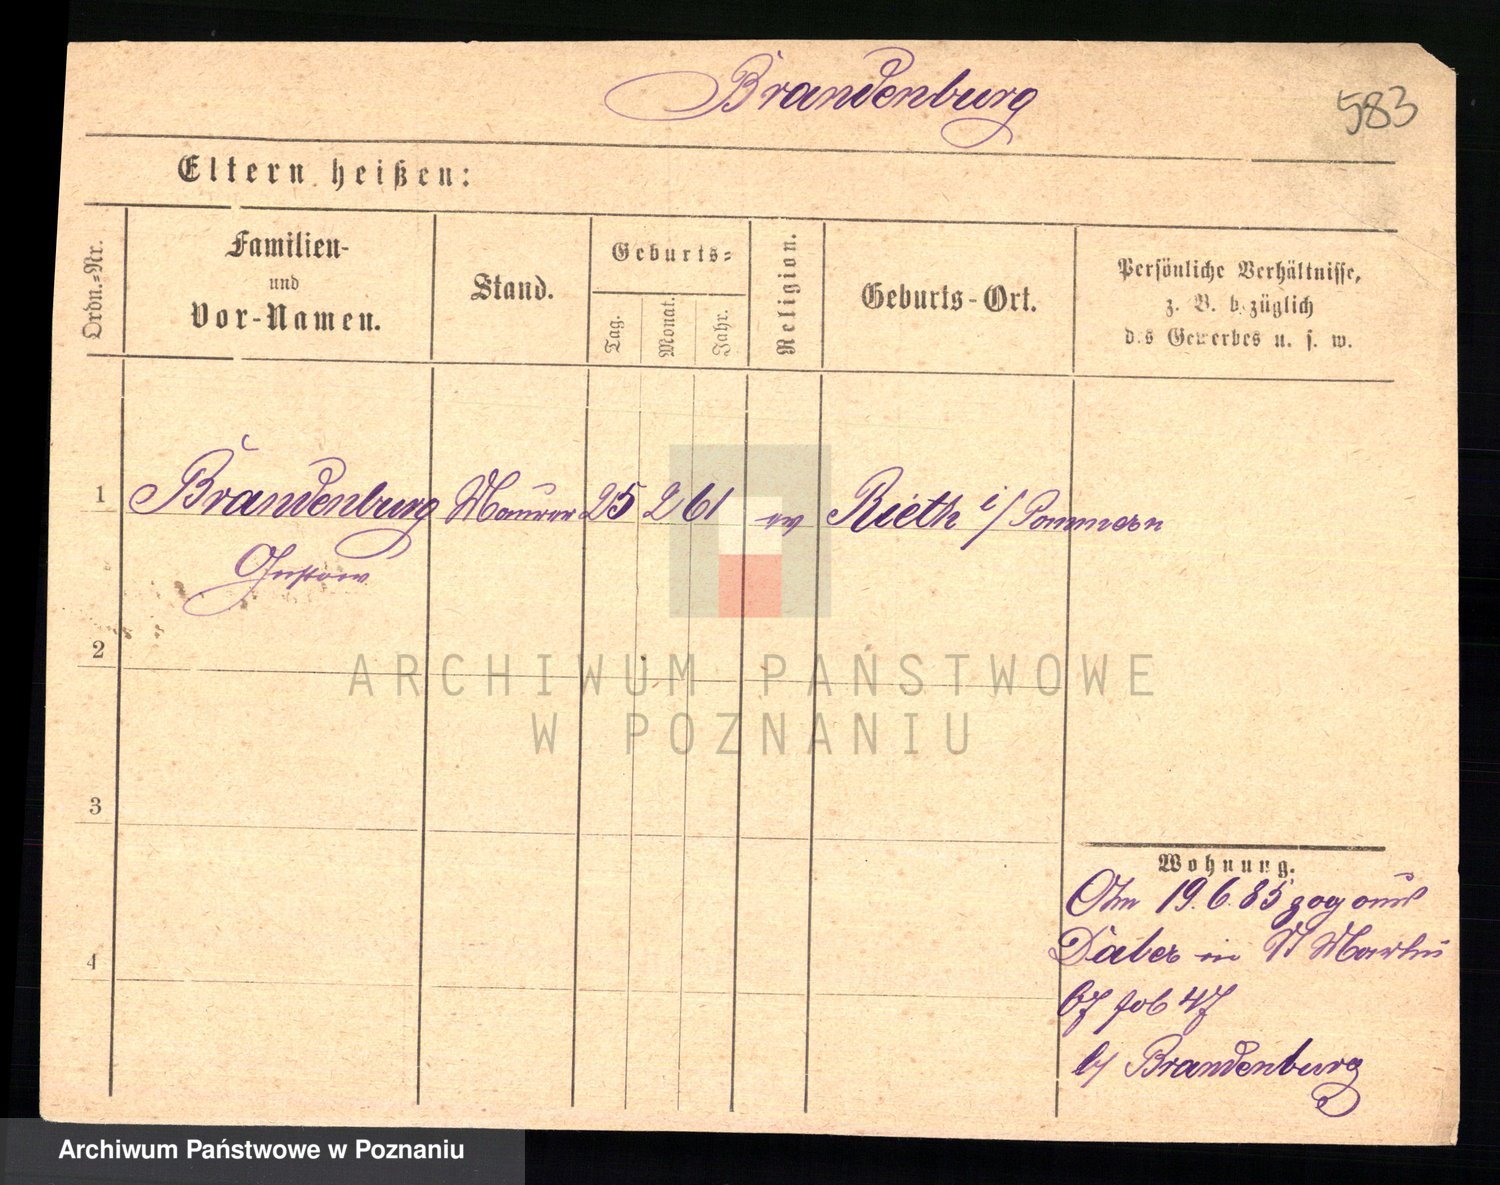 Brandenburg
583
Eltern heißen:
Ordn.-Nr.
Familien-
und
Vor-Namen.
Stand.
Geburts-
Tag.
Monat.
Jahr.
Religion.
Geburts-Ort.
Persönliche Verhältnisse,
z. B. bezüglich
des Gewerbes u. s. w.
1 Brandenburg Maurer 25 2 61 ev Rieth i/Pommern
Gustav
2
3
4
Wohnung.
Am 19.6.85 zog aus
Daber in St Martin
67 fol 47
b/ Brandenburg
ARCHIWUM PAŃSTWOWE
W POZNANIU
Archiwum Państwowe w Poznaniu